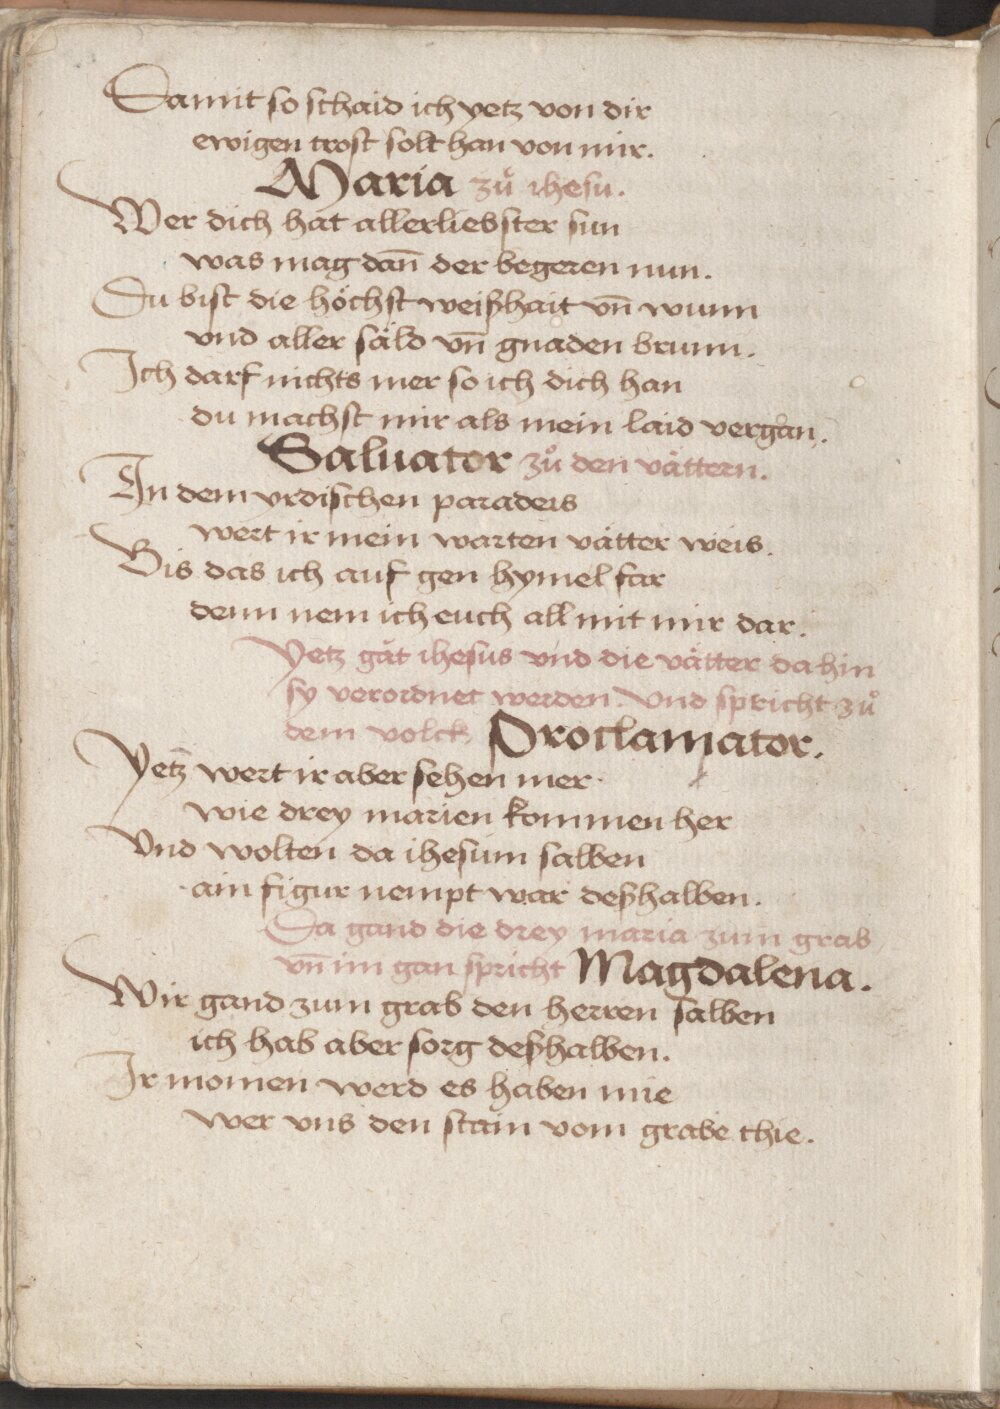 Damit so schaid ich yetz von dir
ewigen trost solt han von mir.
Maria zů ihesu.
Wer dich hat allerliebster sun
was mag dan̄ der begeren nun.
Du bist die höchst weißhait vn̄ wunn
vnd aller säld vn̄ gnaden brunn.
Ich darf nichts mer so ich dich han
du machst mir als mein laid vergan.
Saluator zů den vättern.
In dem yrdischen paradeis
wert ir mein warten vätter weis.
Bis das ich auf gen hymel far
denn nem ich euch all mit mir dar.
Yetz gät ihesus vnd die vätter da hin
sy verordnet werden. Vnd spricht zů
dem volck Proclamator.
Yetz wert ir aber sehen mer.
wie drey marien kommen her
Vnd wolten da ihesum salben
ain figur nempt war deßhalben.
Da gand die drey maria zum grab
vn̄ im gan spricht Magdalena.
Wir gand zum grab den herren salben
ich hab aber sorg deßhalben.
Ir momen werd es haben mie
wer vns den stain vom grabe thie.